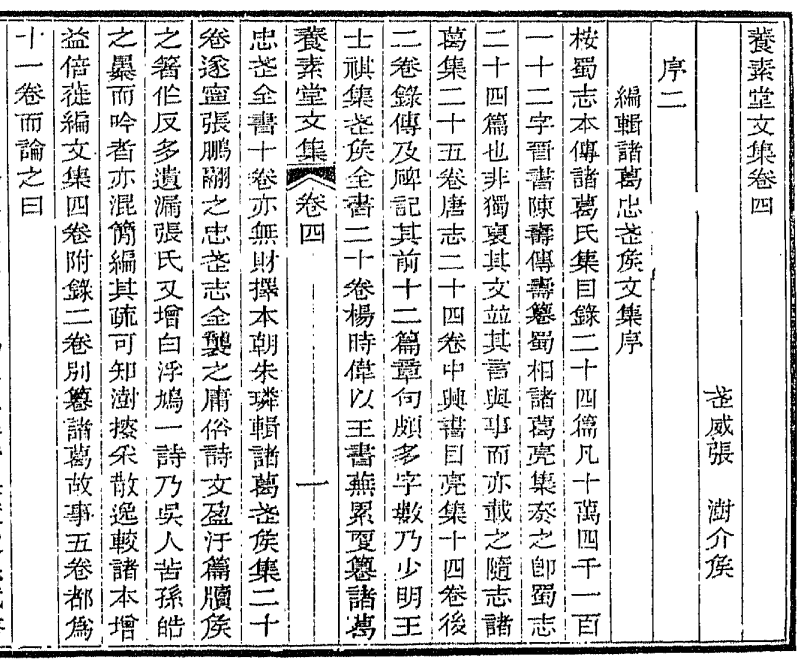 養素堂文集卷四
武威張　澍介侯
序二
編輯諸葛忠武侯文集序
桉蜀志本傳諸葛氏集目錄二十四篇凡十萬四千一百
一十二字晉書陳壽傳壽篹蜀相諸葛亮集奏之卽蜀志
二十四篇也非獨裒其文竝其言與事而亦載之隨志諸
葛集二十五卷唐志二十四卷中興書目亮集十四卷後
二卷錄傳及碑記其前十二篇章句頗多字數乃少明王
士祺集武侯全書二十卷楊時偉以王書蕪累夏篹諸葛
養素堂文集　卷四　一
忠武全書十卷亦無財擇本朝朱璘輯諸葛武侯集二十
卷遂寧張鵬翮之忠武志金襲之庸俗詩文盈汙篇牘侯
之箸作反多遺漏張氏又增白浮鳩一詩乃吳人苦孫皓
之暴而吟者亦混簡編其疏可知澍摭采散逸較諸本增
益倍蓰編文集四卷附錄二卷別篹諸葛故事五卷都爲
十一卷而論之曰